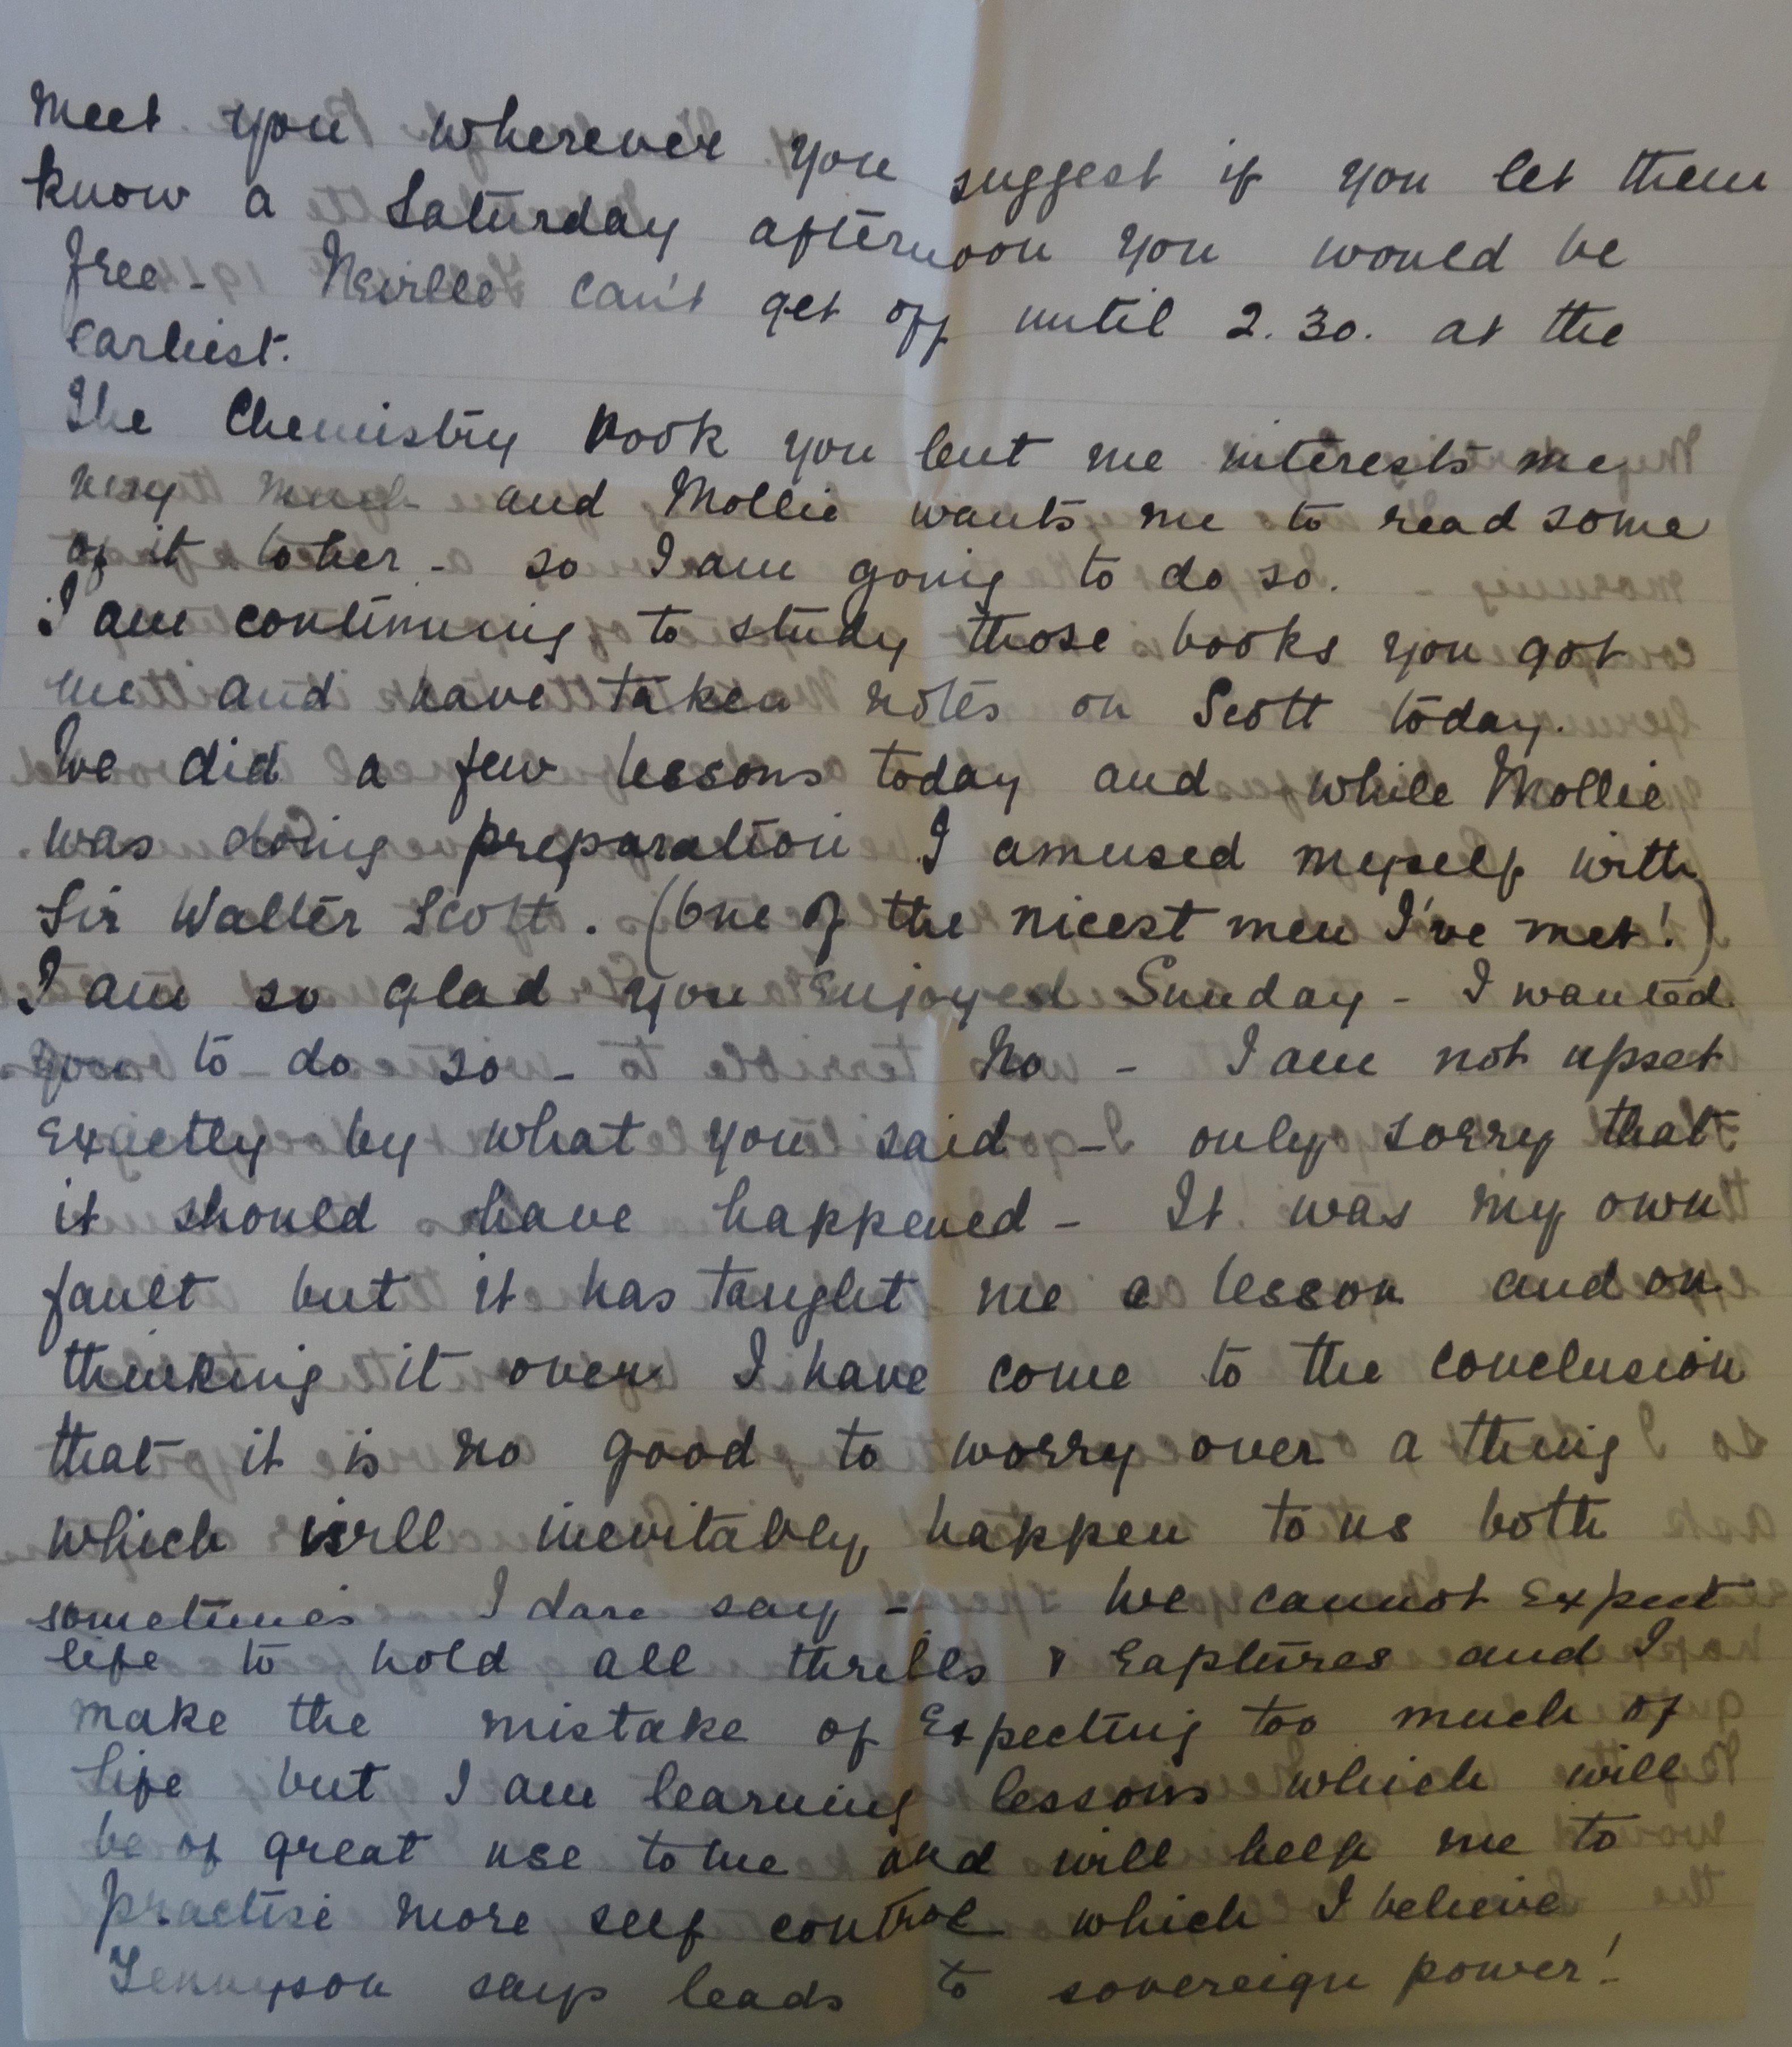 meet you wherever you suggest if you let them
know a Saturday afternoon you would be
free - Neville can't get off until 2.30. at the
earliest.
The Chemistry book you lent me interests me
very much and Mollie wants me to read some
of it to her - so I am going to do so.
I am continuing to study those books you got
me and have taken notes on Scott today.
We did a few lessons today and while Mollie
was doing preparation I amused myself with
Sir Walter Scott. (One of the nicest men I've met!)
I am so glad you enjoyed Sunday - I wanted
you to do so - No - I am not upset
exactly by what you said - only sorry that
it should have happened - It was my own
fault but it has taught me a lesson and on
thinking it over I have come to the conclusion
that it is no good to worry over a thing
which will inevitably happen to us both
sometimes I dare say - We cannot expect
life to hold all thrills & raptures and I
make the mistake of expecting too much of
life but I am learning lessons which will
be of great use to me and will help me to
practise more self control which I believe
Tennyson says leads to sovereign power!